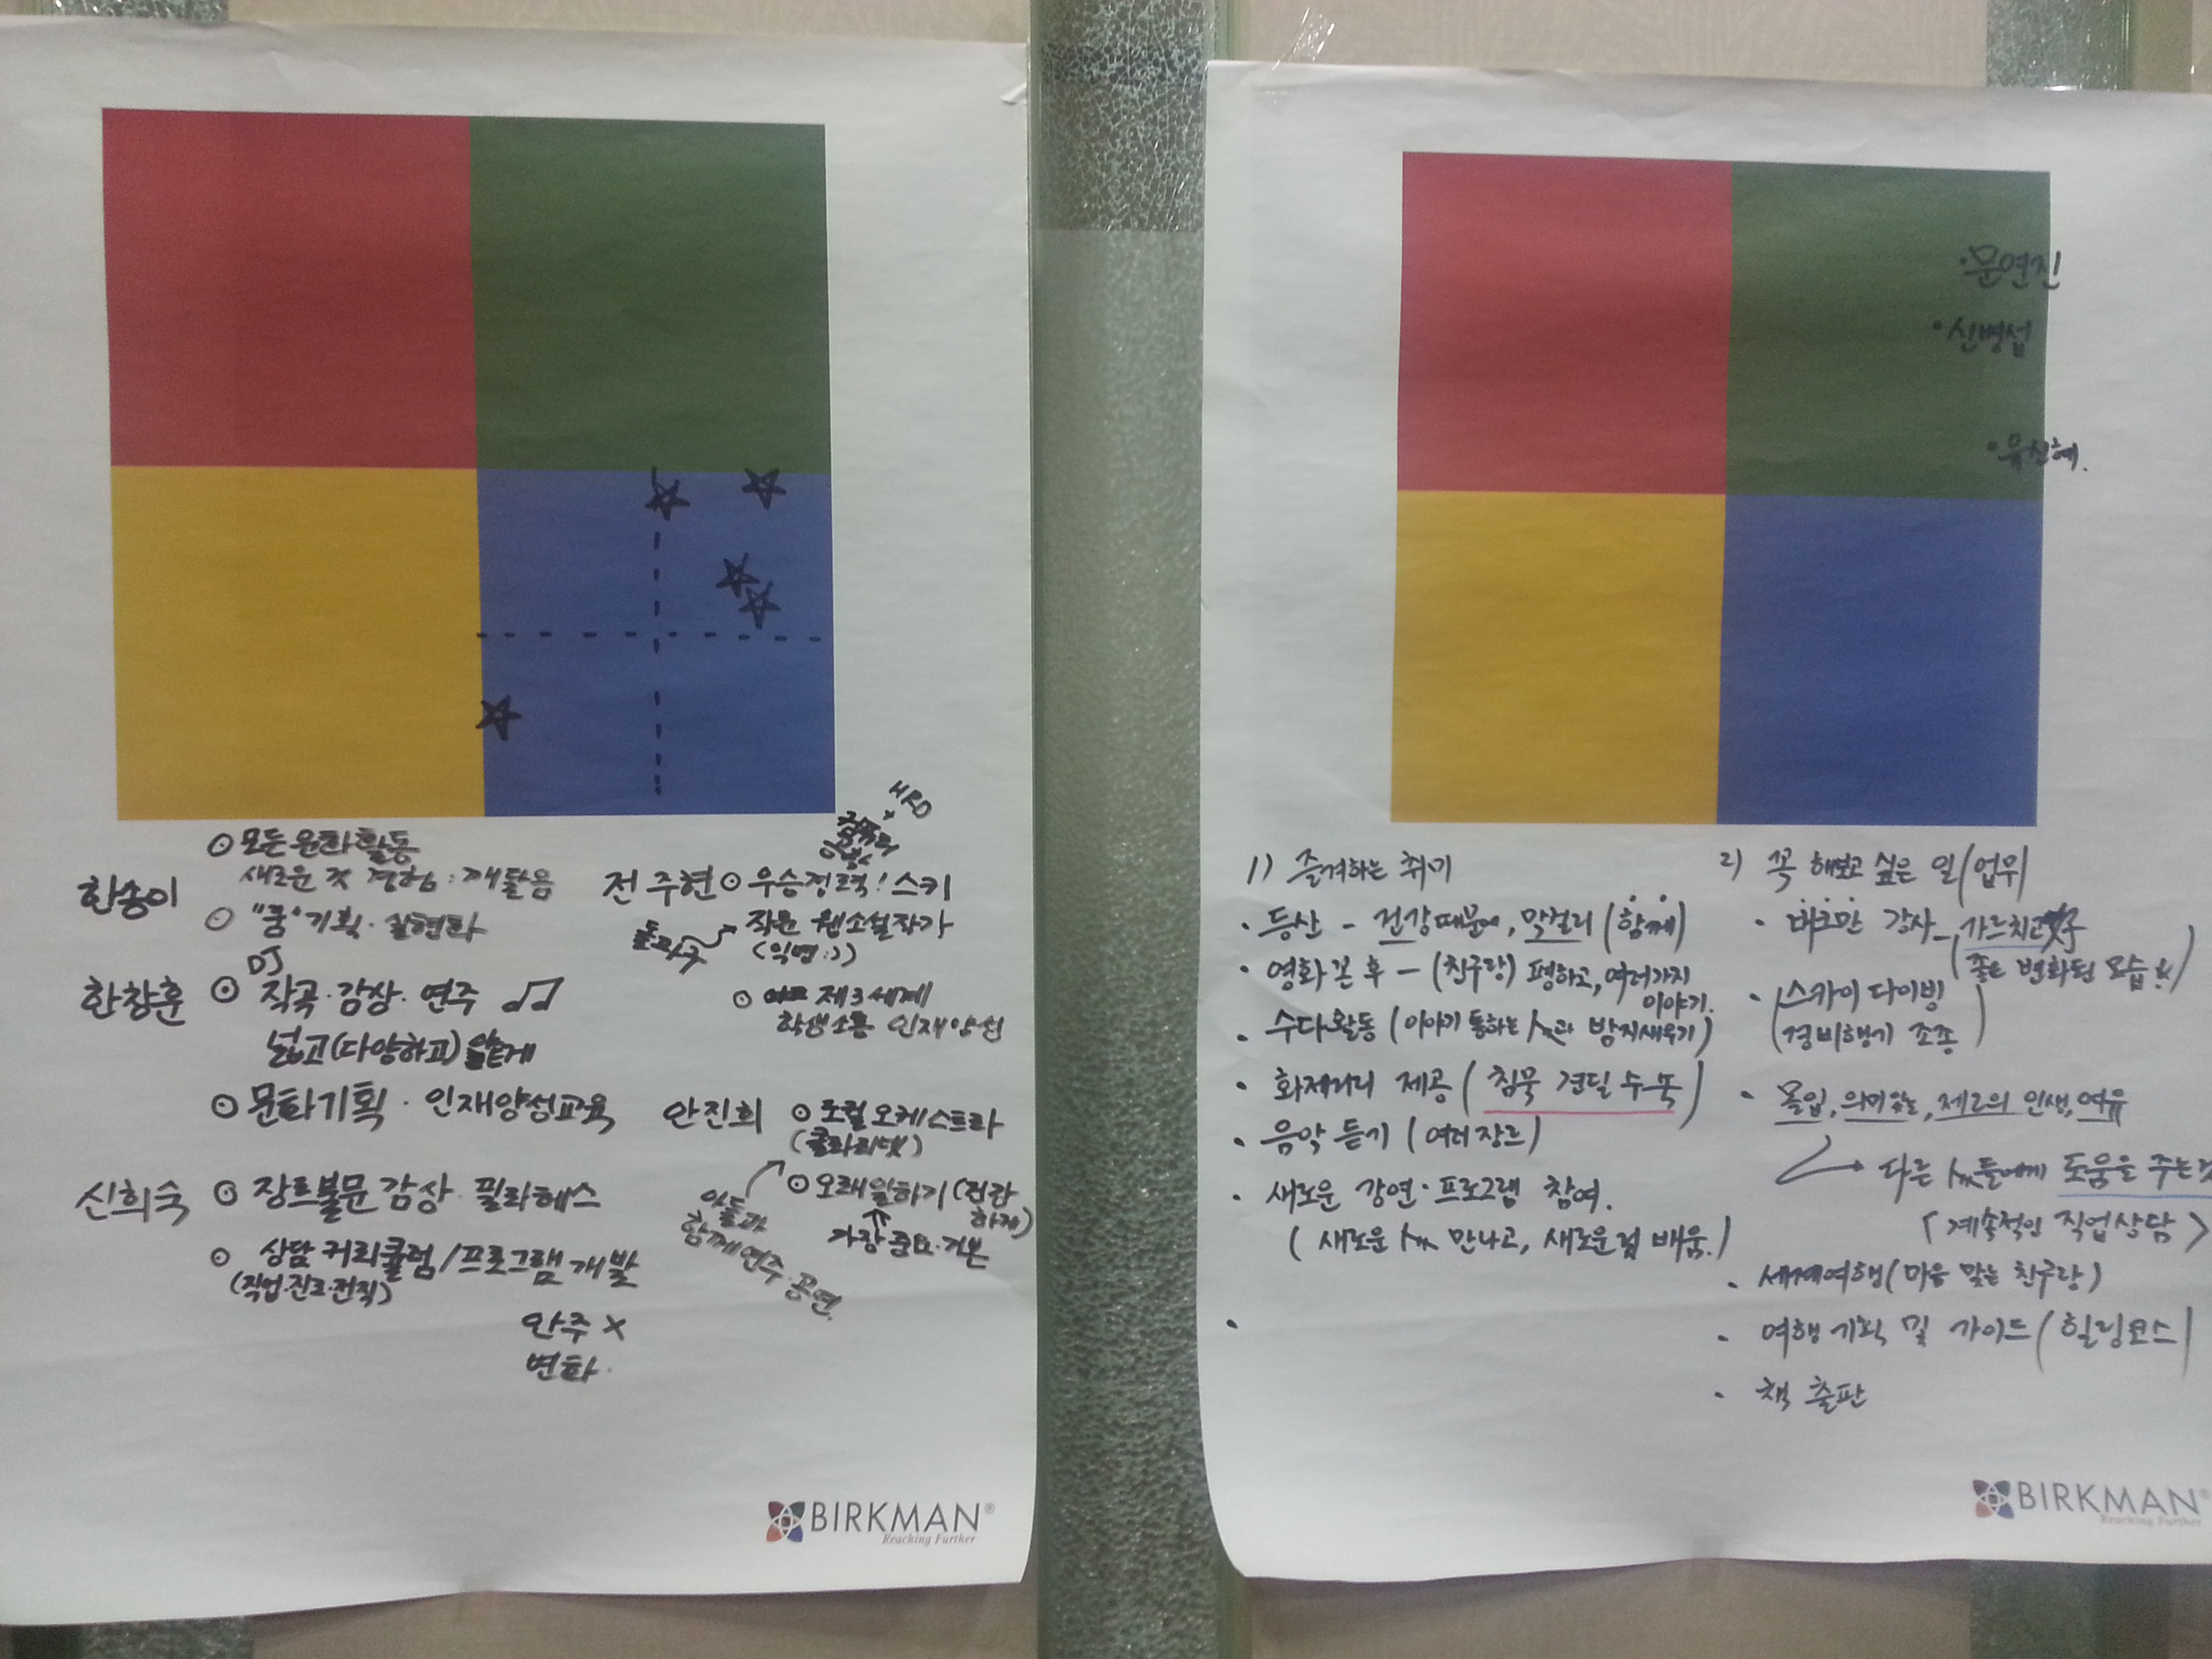 한송이
⊙ 모든 문화활동
새로운 것 경험 : 깨달음
⊙ "꿈" 기획 · 실현화
한창훈
DJ
⊙ 작곡 · 감상 · 연주
넓고(다양하고) 얕게
⊙ 문화기획 · 인재양성교육
신희숙
⊙ 장르불문 감상 · 필라테스
⊙ 상담 커리큘럼/프로그램 개발
(직업·진로·전직)
안주 X
변화.
+ HRD
전주현 ⊙ 우승경력! 스키
작은 웹소설작가
(익명:))
⊙ 제3세계
학생소통 인재양성
안진희 ⊙ 로컬 오케스트라
(클라리넷)
⊙ 오래 일하기 (건강하게)
가장 중요·기본
아들과
함께 연주·공연.
BIRKMAN®
Reaching Further
·문연진
·신병섭
·유신혜.
1) 즐겨하는 취미
· 등산 - 건강때문에, 막걸리 (함께)
· 영화 본 후 - (친구랑) 평하고, 여러가지
이야기.
· 수다활동 (이야기 통하는 人과 밤지새우기)
· 화제거리 제공 (침묵 견딜 수 X)
· 음악 듣기 (여러 장르)
· 새로운 강연·프로그램 참여.
(새로운 人 만나고, 새로운걸 배움.)
2) 꼭 해보고 싶은 일(업무)
· 버크만 강사 - 가르치고
(좋은 변화된 모습!)
· 스카이 다이빙
경비행기 조종
· 몰입, 의미있는, 제2의 인생, 여유
다른 人들에게 도움을 주는것
<계속적인 직업상담>
· 세계여행 (마음 맞는 친구랑)
· 여행 기획 및 가이드 (힐링코스)
· 책 출판
BIRKMAN®
Reaching Further